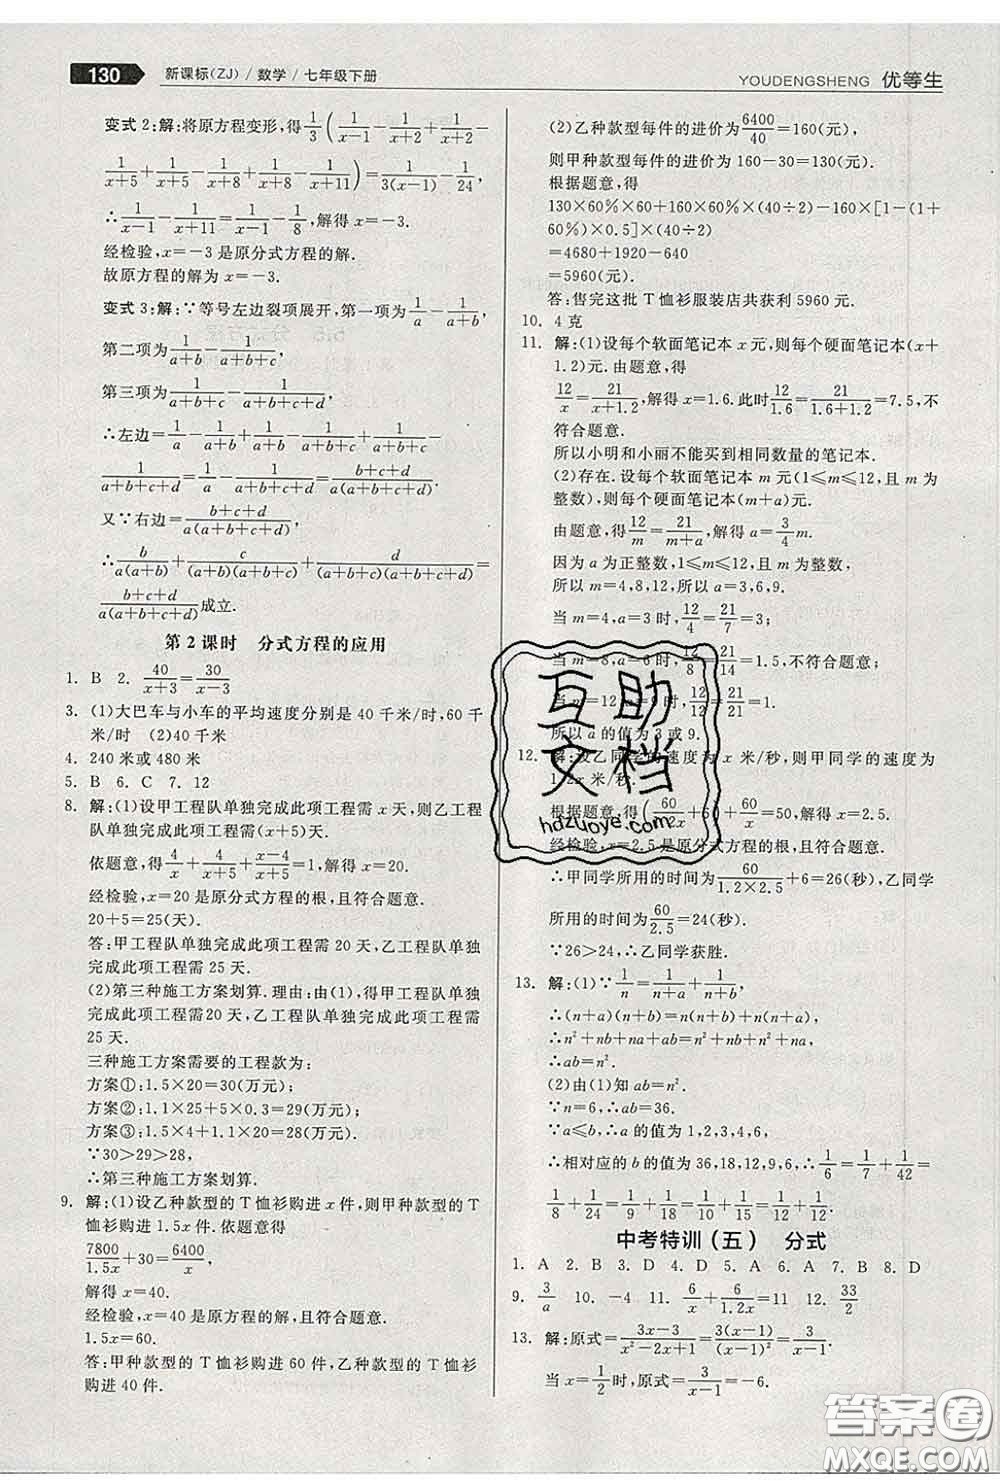 130 新课标(ZJ)/数学/七年级下册
YOUDENGSHENG 优等生
变式2:解:将原方程变形,得1/3(1/(x-1)-1/(x+2)+1/(x+2)-
1/(x+5)+1/(x+5)-1/(x+8)+1/(x+8)-1/(x+11))=1/(3(x-1))-1/24,
∴1/(x-1)-1/(x+11)=1/(x-1)-1/8,解得x=-3.
经检验,x=-3是原分式方程的解.
故原方程的解为x=-3.
变式3:解:∵等号左边裂项展开,第一项为1/a-1/(a+b),
第二项为1/(a+b)-1/(a+b+c),
第三项为1/(a+b+c)-1/(a+b+c+d),
∴左边=1/a-1/(a+b)+1/(a+b)-1/(a+b+c)+1/(a+b+c)-
1/(a+b+c+d)=1/a-1/(a+b+c+d)=(b+c+d)/(a(a+b+c+d)).
又∵右边=(b+c+d)/(a(a+b+c+d)),
∴b/(a(a+b))+c/((a+b)(a+b+c))+d/((a+b+c)(a+b+c+d))=
(b+c+d)/(a(a+b+c+d))成立.
第2课时 分式方程的应用
1. B 2. 40/(x+3)=30/(x-3)
3. (1)大巴车与小车的平均速度分别是40千米/时,60千
米/时 (2)40千米
4. 240米或480米
5. B 6. C 7. 12
8. 解:(1)设甲工程队单独完成此项工程需x天,则乙工程
队单独完成此项工程需(x+5)天.
依题意,得4/x+4/(x+5)+(x-4)/(x+5)=1,解得x=20.
经检验,x=20是原分式方程的解,且符合题意.
20+5=25(天).
答:甲工程队单独完成此项工程需20天,乙工程队单独
完成此项工程需25天.
(2)第三种施工方案划算.理由:由(1),得甲工程队单独
完成此项工程需20天,乙工程队单独完成此项工程需
25天.
三种施工方案需要的工程款为:
方案①:1.5×20=30(万元);
方案②:1.1×(5+20)... 
方案③:1.5×4+1.1×20=28(万元).
∵30>29>28,
∴第三种施工方案划算.
9. 解:(1)设乙种款型的T恤衫购进x件,则甲种款型的T
恤衫购进1.5x件.依题意得
7800/1.5x+30=6400/x,
解得x=40.
经检验,x=40是原方程的解,且符合题意.
1.5x=60.
答:甲种款型的T恤衫购进60件,乙种款型的T恤衫
购进40件.
(2)乙种款型每件的进价为6400/40=160(元),
则甲种款型每件的进价为160-30=130(元).
根据题意,得
130×60%×60+160×60%×(40÷2)-160×[1-(1+
60%)×0.5]×(40÷2)
=4680+1920-640
=5960(元).
答:售完这批T恤衫服装店共获利5960元.
10. 4克
11. 解:(1)设每个软面笔记本x元,则每个硬面笔记本(x+
1.2)元.由题意,得
12/x=21/(x+1.2),解得x=1.6.此时12/1.6=21/(1.6+1.2)=7.5,不
符合题意.
所以小明和小丽不能买到相同数量的笔记本.
(2)存在.设每个软面笔记本m元(1≤m≤12,且m为
整数),则每个硬面笔记本(m+a)元.
由题意,得12/m=21/(m+a),解得a=3/4m.
因为a为正整数,1≤m≤12,且m为整数,
所以m=4,8,12,此时a=3,6,9.
当m=4,a=3时,12/4=21/7=3;
当m=8,a=6时,12/8=21/14=1.5,不符合题意;
当m=12,a=9时,12/12=21/21=1.
所以a的值为3或9.
12. 解:设乙同学的速度为x米/秒,则甲同学的速度为
1.2x米/秒.
根据题意,得(60/1.2x+6)+60/x=50
经检验,x=2.5是原分式方程的根,且符合题意.
∴甲同学所用的时间为60/(1.2×2.5)+6=26(秒),乙同学
所用的时间为60/2.5=24(秒).
∵26>24,∴乙同学获胜.
13. 解:(1)∵1/n=1/(n+a)+1/(n+b),
∴(n+a)(n+b)=n(n+b)+n(n+a),
∴n²+nb+na+ab=n²+nb+n²+na,
∴ab=n².
(2)由(1)知ab=n².
∵n=6,∴ab=36.
∵a≤b,∴a的值为1,2,3,4,6,
∴相对应的b的值为36,18,12,9,6,∴1/6=1/7+1/42=
1/8+1/24=1/9+1/18=1/10+1/15=1/12+1/12.
中考特训(五) 分式
1. A 2. B 3. D 4. D 5. A 6. A 7. B 8. D
9. 3/a 10. -4 11. 6/x+6/1.2x=11 12. 33/2
13. 解:原式=(3x-3)/(x²-2x+1)=3(x-1)/(x-1)²=3/(x-1).
当x=1/2时,原式=3/(x-1)=-6.
互助
文档
hdzuoye.com
答案圈
MXQE.COM